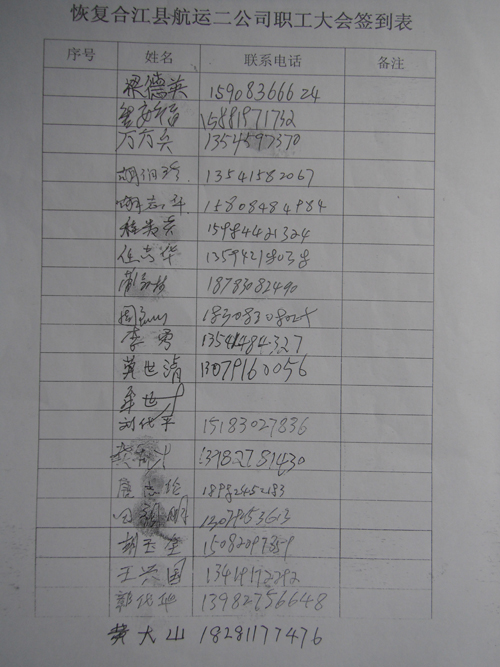 恢复合江县航运二公司职工大会签到表
序号 姓名 联系电话 备注
梁德英 15908366624
15881971732
万方兵 1354597370
胡 13541582067
15808484984
程贵英 15984421324
任志华 13594218038
18783082490
周 1830830802
李勇 13541484327
莫世清 13079160056
牟世才
刘代平 15183027836
13982781430
18982452183
13079853613
胡玉奎 15082097859
王兴国 13419172292
郭代地 13982756648
黄大山 18281177476